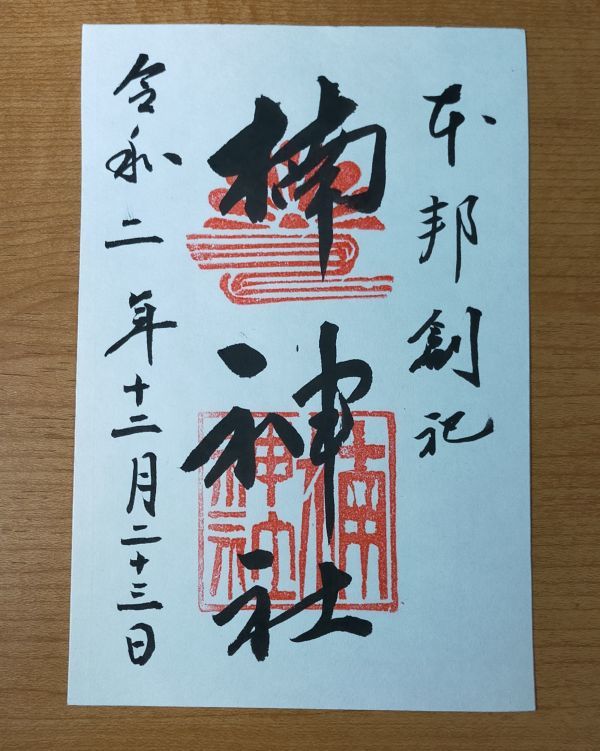 本邦創祀
楠神社
楠
神社
令和二年十二月二十三日